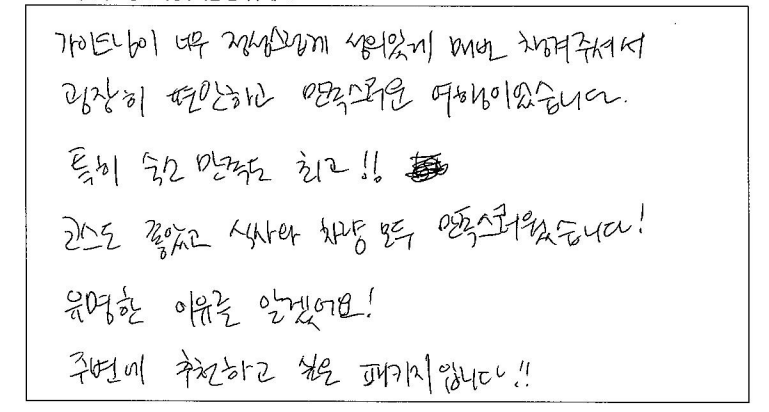 가이드님이 너무 정성스럽게 성의있게 매번 챙겨주셔서
굉장히 편안하고 만족스러운 여행이었습니다.
특히 숙소 만족도 최고!!
코스도 좋았고 식사와 차량 모두 만족스러웠습니다!
유명한 이유를 알겠어요!
주변에 추천하고 싶은 패키지입니다!!